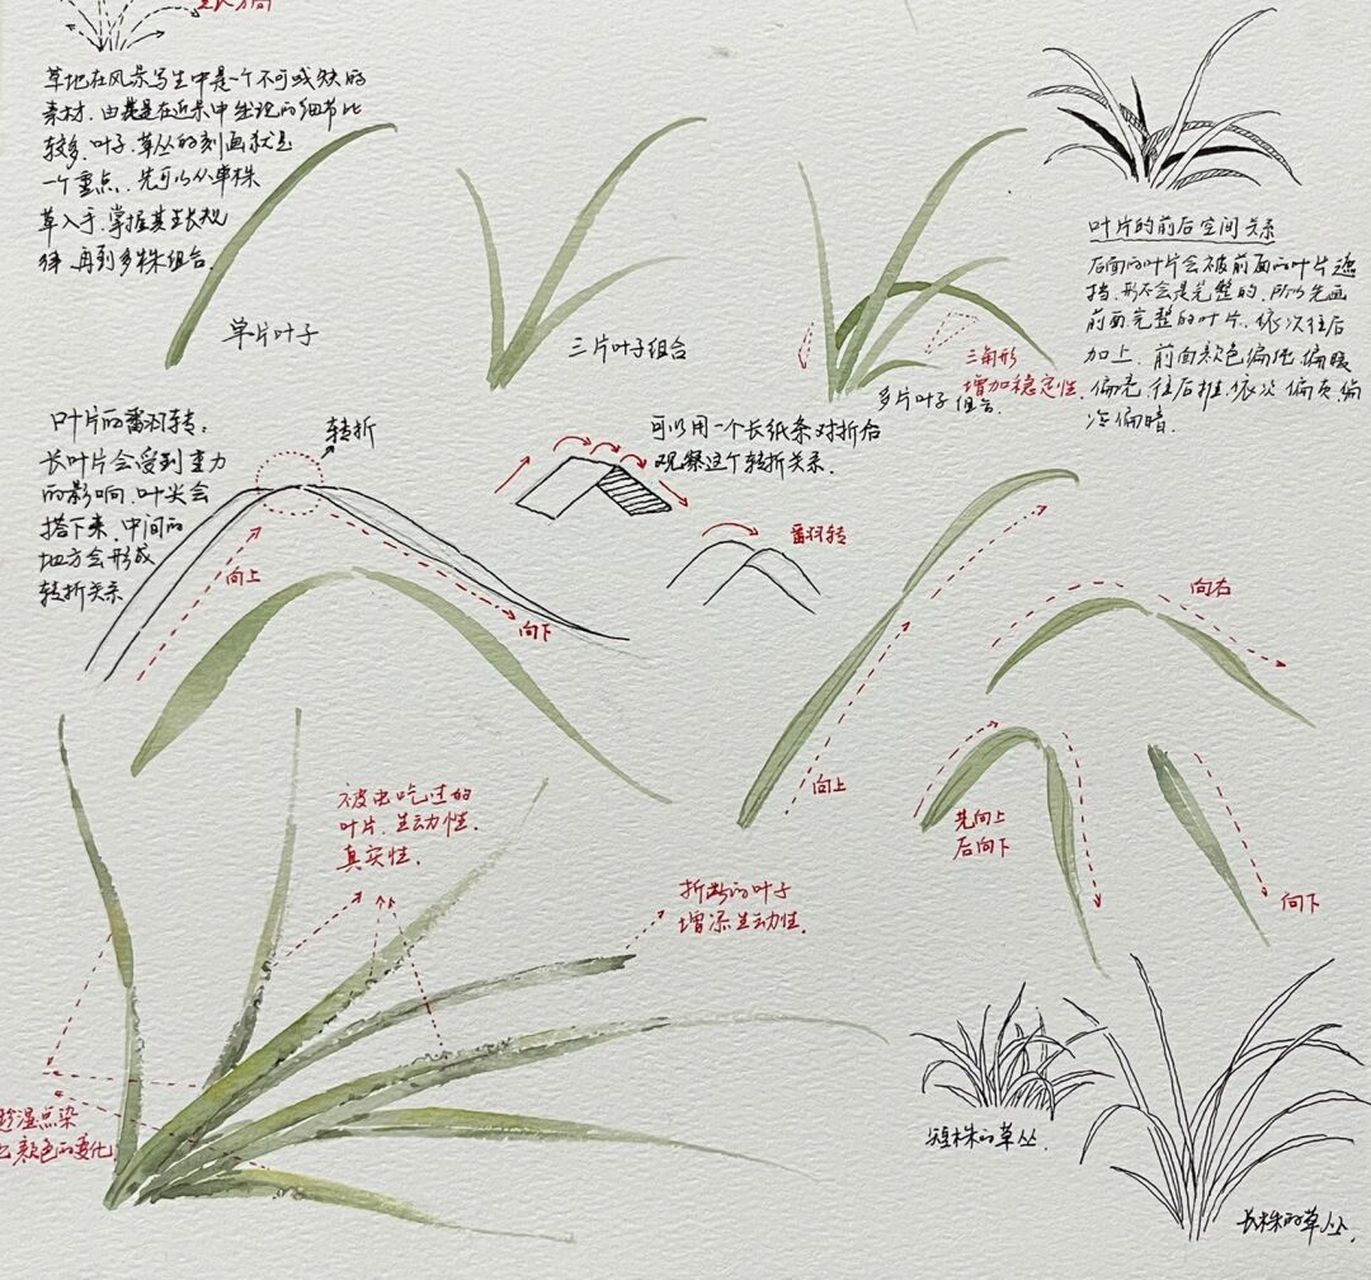 生长方向
草地在风景写生中是一个不可或缺的
素材.由其是在近景中出现的细节比
较多.叶子.草丛的刻画就是
一个重点.先可以从单株
草入手.掌握其生长规
律.再到多株组合.
单片叶子
三片叶子组合
三角形
增加稳定性.
多片叶子组合.
叶片的前后空间关系
后面的叶片会被前面的叶片遮
挡.形不会是完整的.所以先画
前面完整的叶片.依次往后
加上.前面颜色偏纯.偏暖
偏亮.往后推.依次偏灰.偏
冷.偏暗.
叶片的翻转:
长叶片会受到重力
的影响.叶尖会
搭下来.中间的
地方会形成
转折关系
转折
向上
向下
可以用一个长纸条对折后
观察这个转折关系.
翻转
向上
向右
先向上
后向下
向下
被虫吃过的
叶片.生动性.
真实性.
折断的叶子
增添生动性.
趁湿点染
颜色的变化
短株的草丛.
长株的草丛.